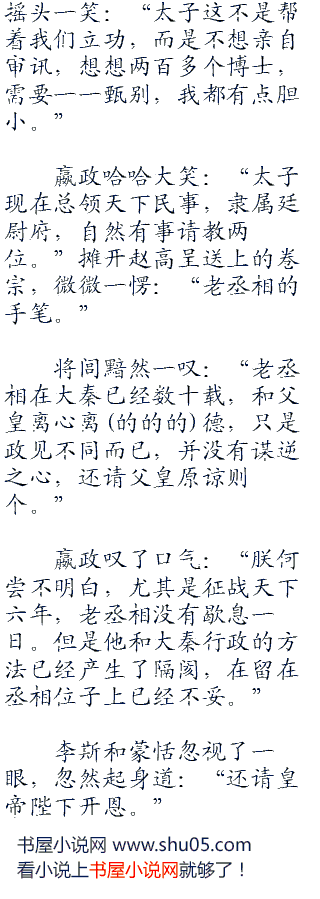 摇头一笑：“太子这不是帮
着我们立功，而是不想亲自
审讯，想想两百多个博士，
需要一一甄别，我都有点胆
小。”
嬴政哈哈大笑：“太子
现在总领天下民事，隶属廷
尉府，自然有事请教两
位。”摊开赵高呈送上的卷
宗，微微一愣：“老丞相的
手笔。”
将闾黯然一叹：“老丞
相在大秦已经数十载，和父
皇离心离(的的的)德，只是
政见不同而已，并没有谋逆
之心，还请父皇原谅则
个。”
嬴政叹了口气：“朕何
尝不明白，尤其是征战天下
六年，老丞相没有歇息一
日。但是他和大秦行政的方
法已经产生了隔阂，在留在
丞相位子上已经不妥。”
李斯和蒙恬忽视了一
眼，忽然起身道：“还请皇
帝陛下开恩。”
书屋小说网 www.shu05.com
看小说上书屋小说网就够了！